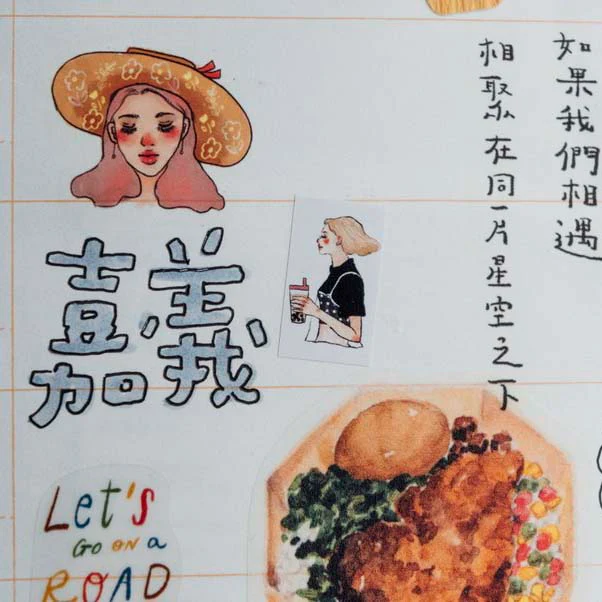 如果我們相遇
相聚在同一片星空之下
嘉義
Let's
GO ON a
ROAD